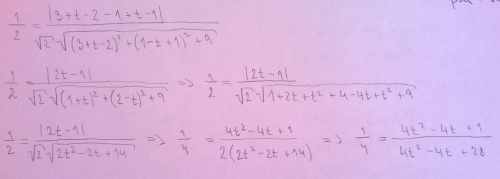 1/2 = |3+t-2-1+t-1| / √2 √((3+t-2)² + (1-t+1)² + 9)
1/2 = |2t-1| / √2 √((1+t)² + (2-t)² + 9) => 1/2 = |2t-1| / √2 √(1+2t+t²+4-4t+t²+9)
1/2 = |2t-1| / √2 √(2t²-2t+14) => 1/4 = 4t²-4t+1 / 2(2t²-2t+14) => 1/4 = 4t²-4t+1 / 4t²-4t+28